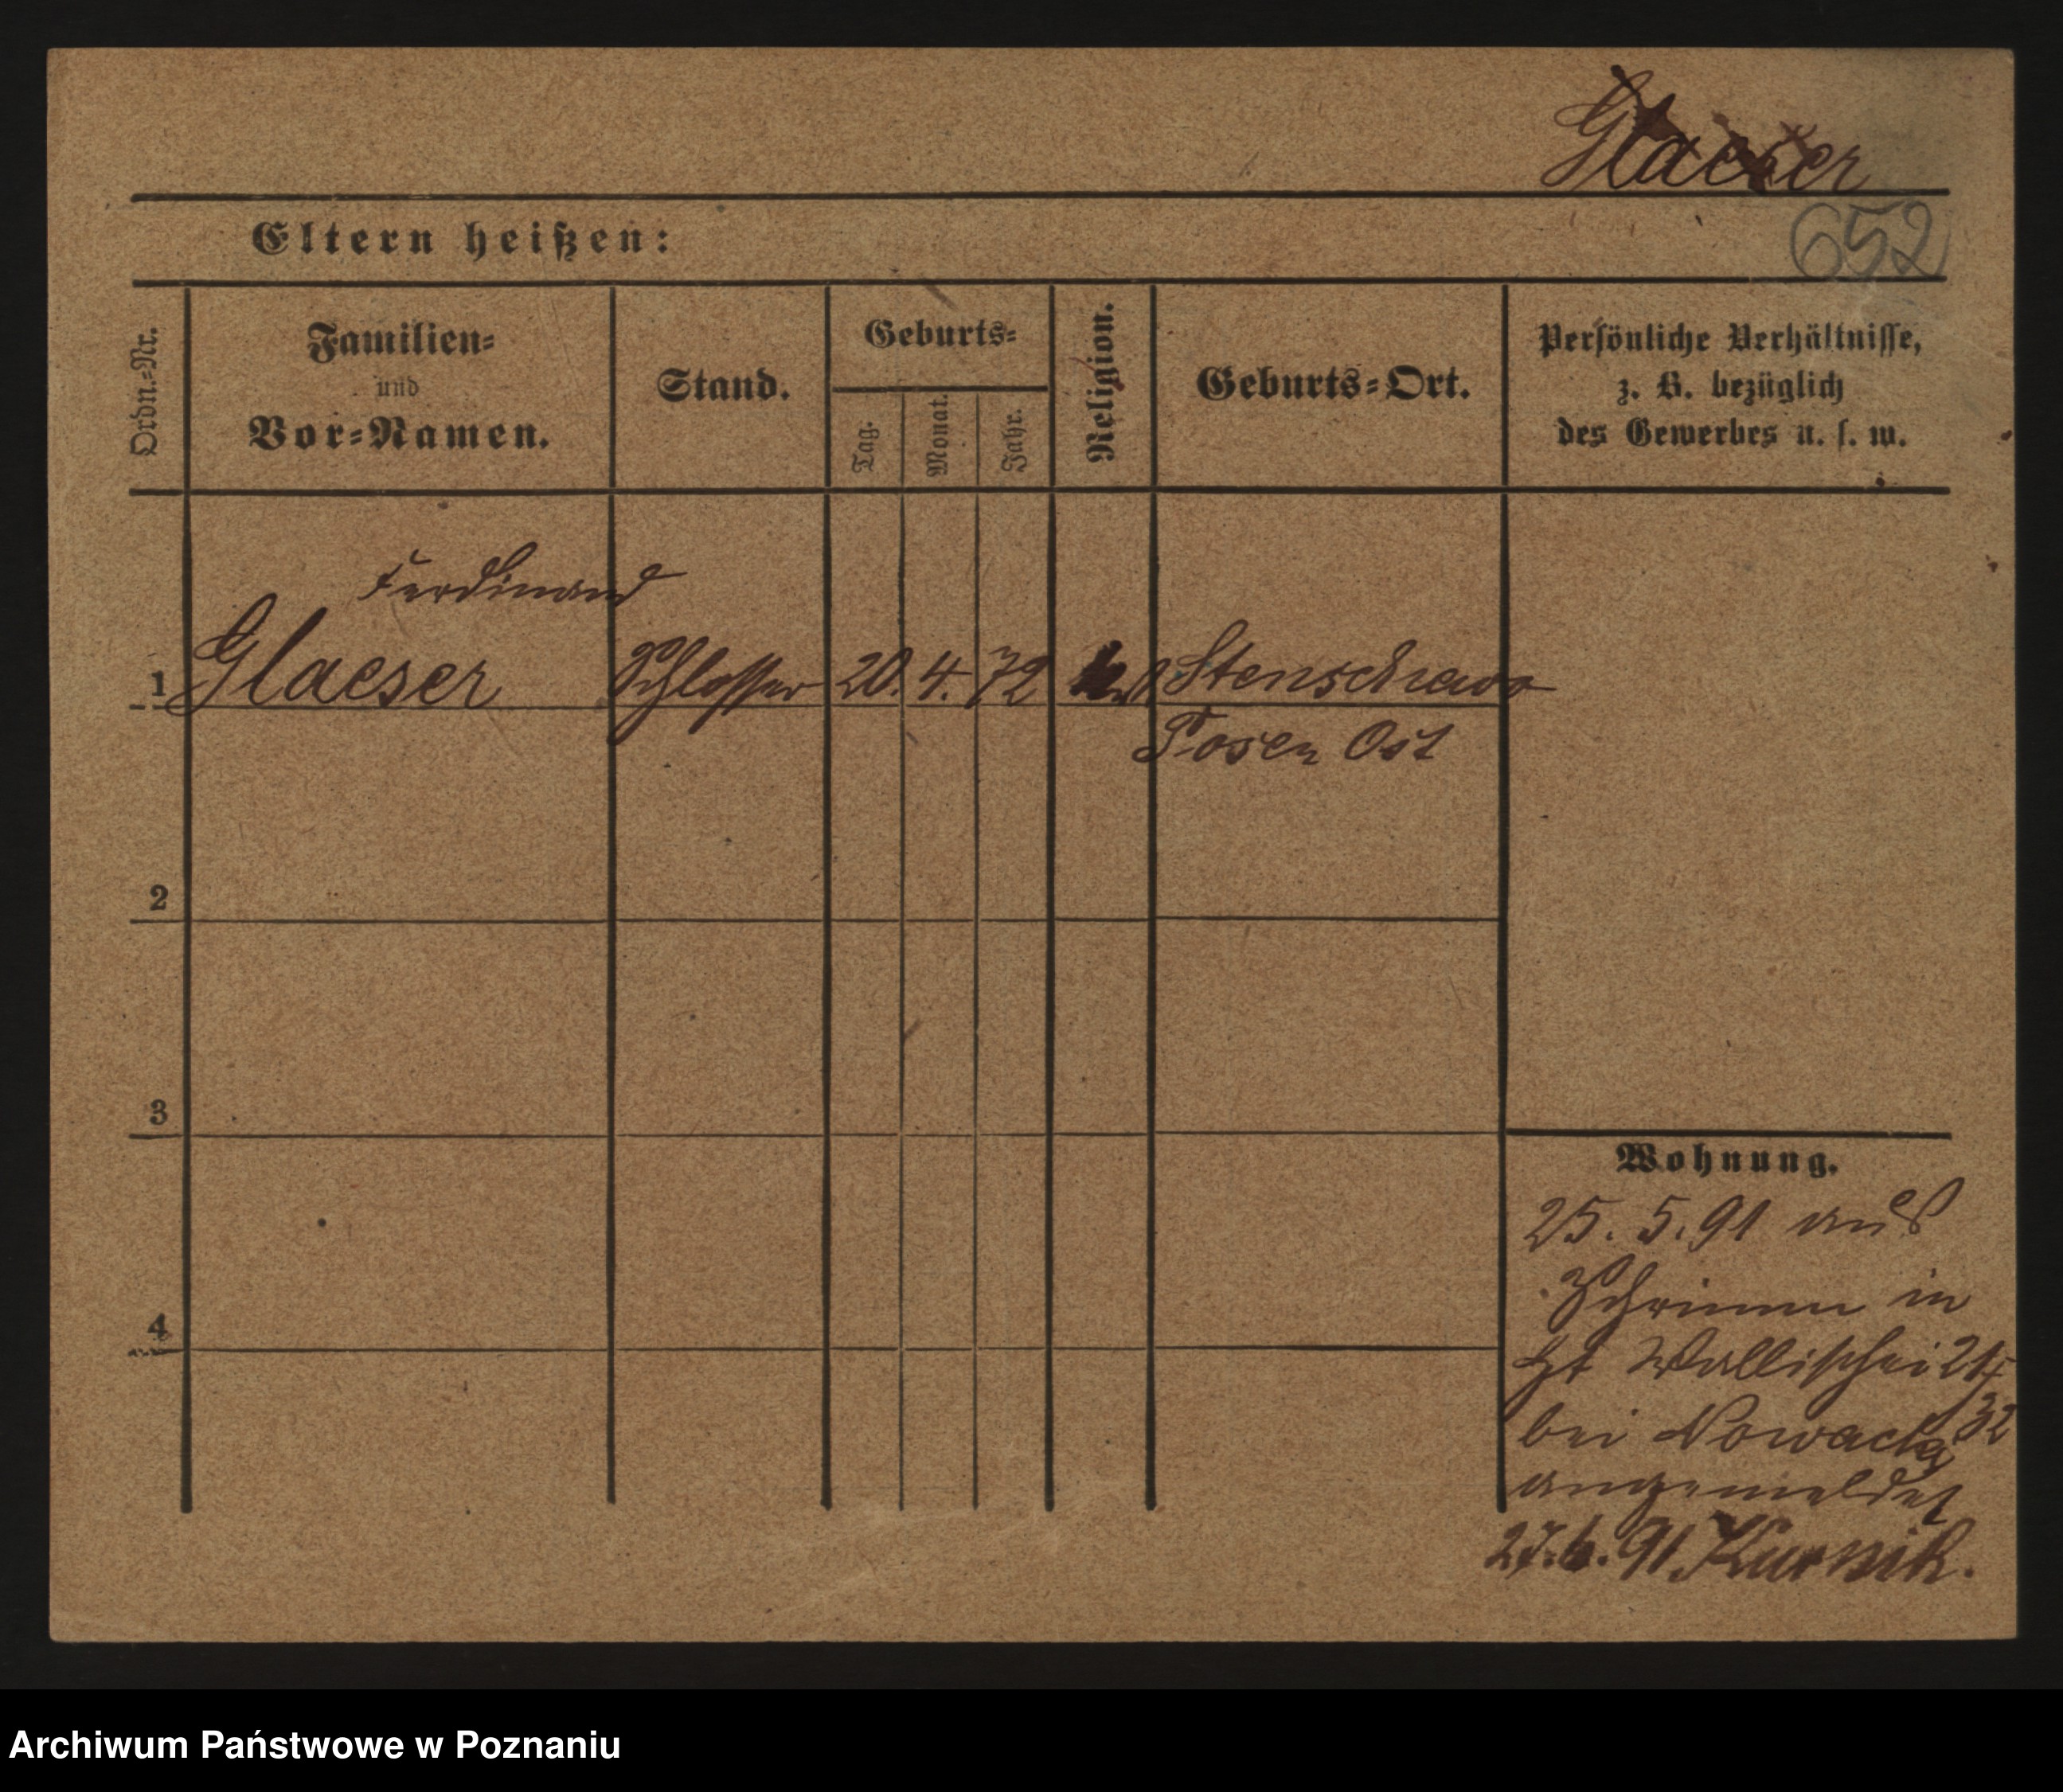 Glaeser
Eltern heißen:
652
Ordn.=Nr.
Familien=
und
Vor=Namen.
Stand.
Geburts=
Tag.
Monat.
Jahr.
Religion.
Geburts=Ort.
Persönliche Verhältnisse,
z. B. bezüglich
des Gewerbes u. s. w.
Ferdinand
1 Glaeser Schlosser 20. 4. 72 Stenschewo
Posen Ost
2
3
4
Wohnung.
25. 5. 91 aus
Schrimm in
Wallischei
bei Nowacka 32
angemeldet
91. Kurnik.
Archiwum Państwowe w Poznaniu